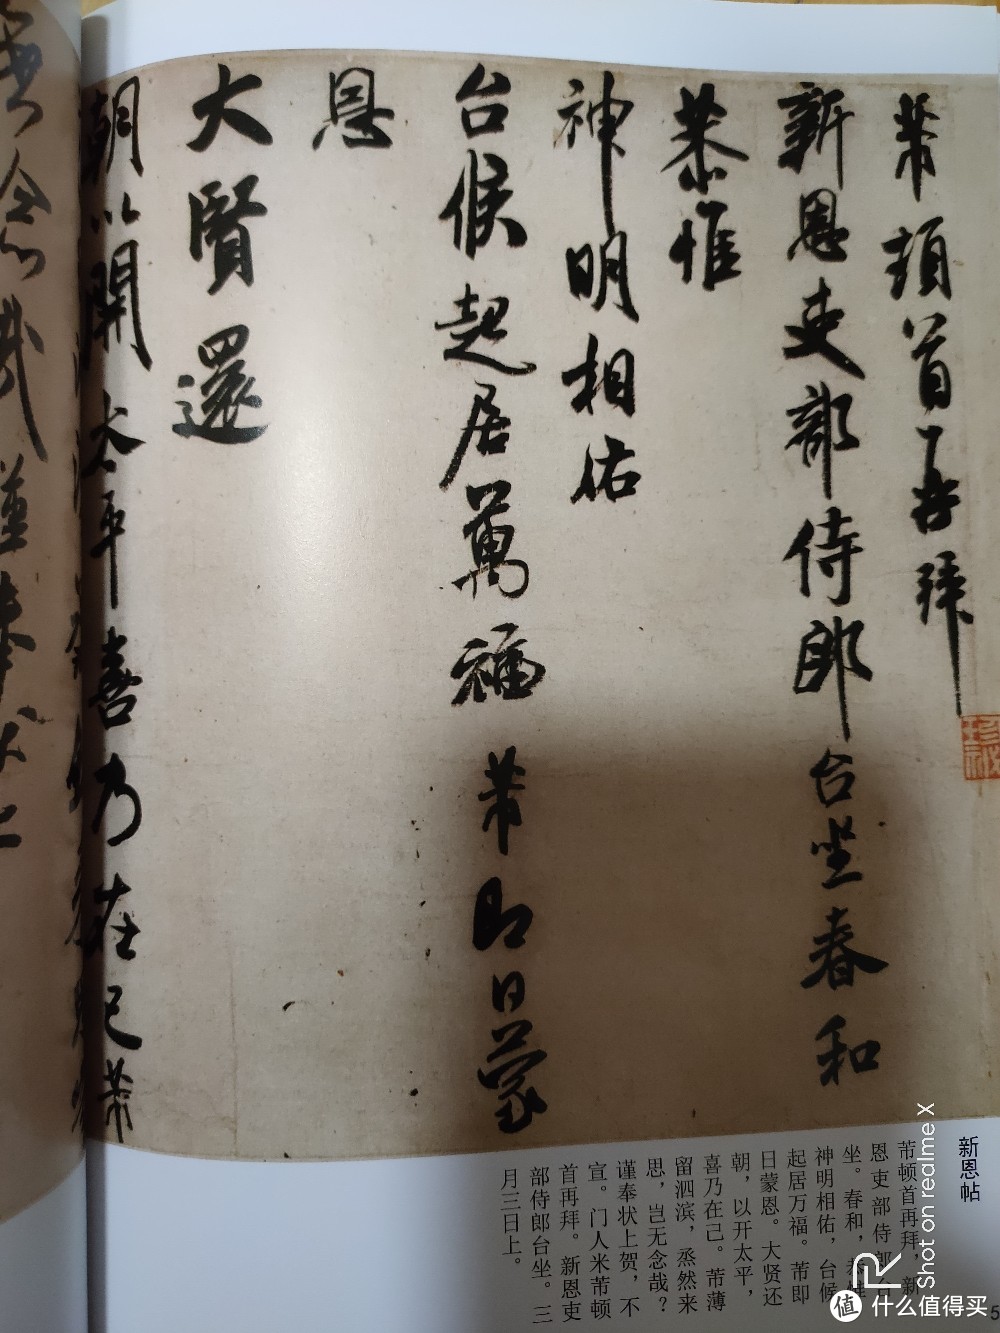 芾頓首再拜
新恩吏部侍郎台坐春和
恭惟
神明相佑
台候起居萬福芾即日蒙
恩
大賢還
朝以開太平喜乃在己芾
無念哉謹奉狀上
新恩帖
芾顿首再拜，新
恩吏部侍郎台
坐。春和，恭惟
神明相佑，台候
起居万福。芾即
日蒙恩。大贤还
朝，以开太平，
喜乃在己。芾薄
留泗滨，烝然来
思，岂无念哉？
谨奉状上贺，不
宣。门人米芾顿
首再拜。新恩吏
部侍郎台坐。三
月三日上。
Shot on realme X
值 什么值得买